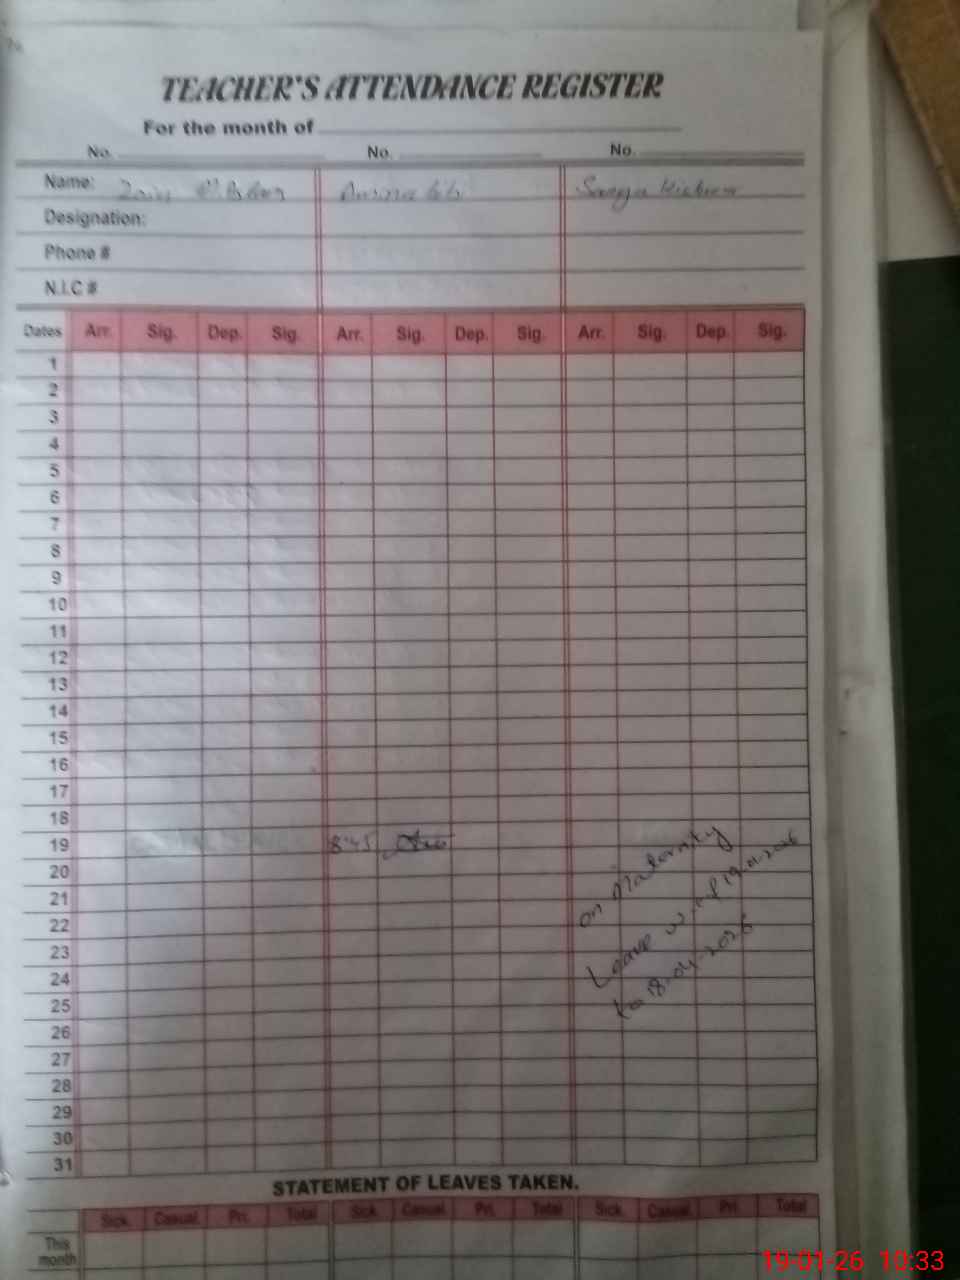 TEACHER'S ATTENDANCE REGISTER
For the month of
No. No. No.
Name: Amina bibi
Designation:
Phone #
N.I.C #
Dates Arr. Sig. Dep. Sig. Arr. Sig. Dep. Sig. Arr. Sig. Dep. Sig.
1
2
3
4
5
6
7
8
9
10
11
12
13
14
15
16
17
18
19 8:45
20
21
22
23
24
25
26
27
28
29
30
31
on Maternity
Leave w.e.f 19-01-2026
to 18-04-2026
STATEMENT OF LEAVES TAKEN.
Sick. Casual. Pri. Total Sick. Casual. Pri. Total Sick. Casual. Pri. Total
This
month
19-01-26 10:33